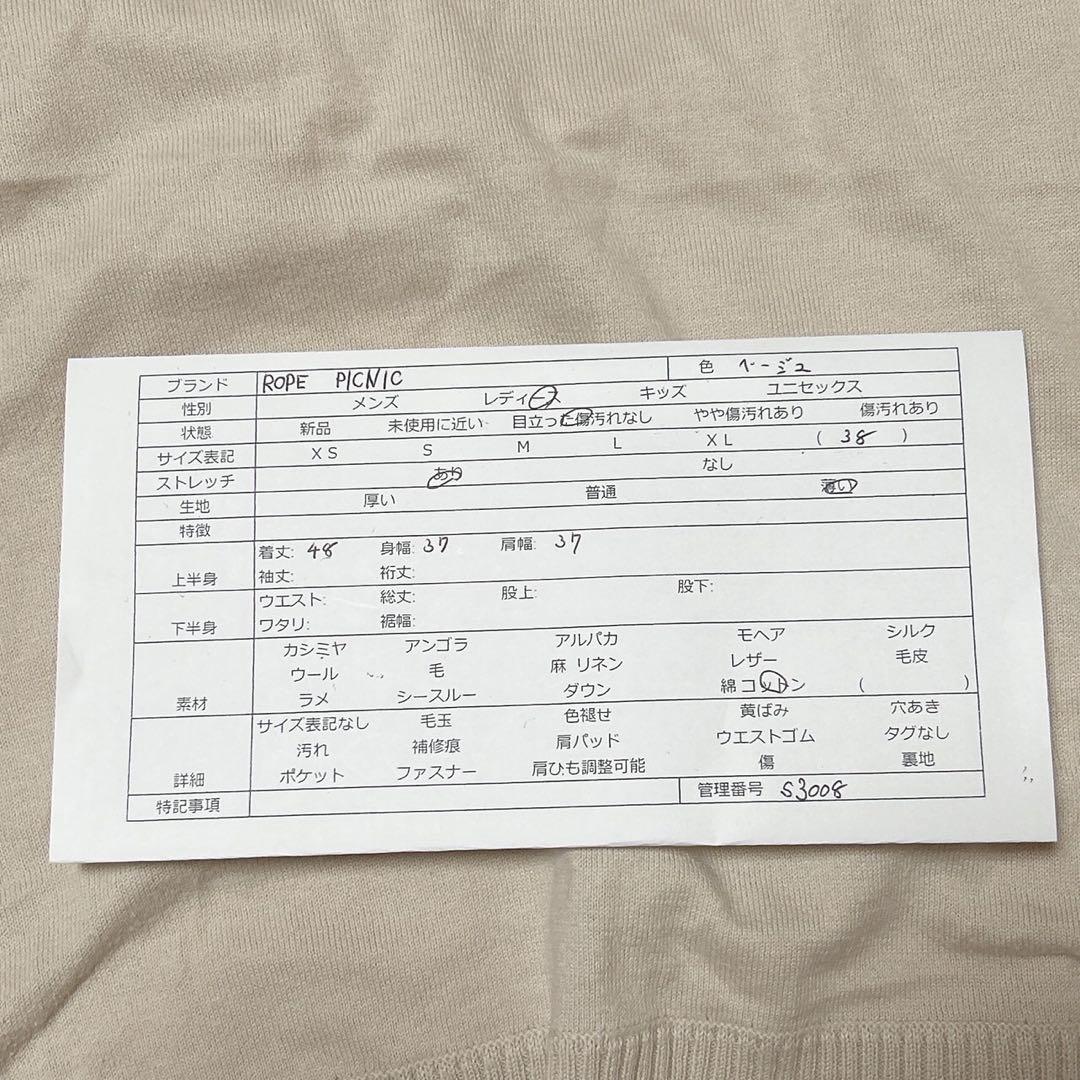 ブランド ROPE PICNIC 色 ベージュ
性別 メンズ レディース キッズ ユニセックス
状態 新品 未使用に近い 目立った傷汚れなし やや傷汚れあり 傷汚れあり
サイズ表記 XS S M L XL ( 38 )
ストレッチ あり なし
生地 厚い 普通 薄い
特徴
着丈: 48 身幅: 37 肩幅: 37
上半身 袖丈: 裄丈:
ウエスト: 総丈: 股上: 股下:
下半身 ワタリ: 裾幅:
カシミヤ アンゴラ アルパカ モヘア シルク
ウール 毛 麻 リネン レザー 毛皮
素材 ラメ シースルー ダウン 綿 コットン ( )
サイズ表記なし 毛玉 色褪せ 黄ばみ 穴あき
汚れ 補修痕 肩パッド ウエストゴム タグなし
詳細 ポケット ファスナー 肩ひも調整可能 傷 裏地
特記事項 管理番号 S3008